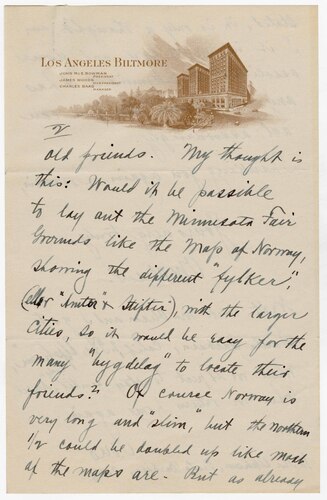 LOS ANGELES BILTMORE
JOHN McE. BOWMAN
PRESIDENT
JAMES WOODS
VICE-PRESIDENT
CHARLES BAAD
MANAGER
2/
old friends. My thought is
this: Would it be possible
to lay out the Minnesota Fair
Grounds like the map of Norway,
showing the different "fylker",
(eller "Amter" & Stifter), with the larger
Cities, so it would be easy for the
many "bygdelag" to locate their
friends? Of course Norway is
very long and "slim", but the northern
1/2 could be doubled up like most
of the maps are. But as already